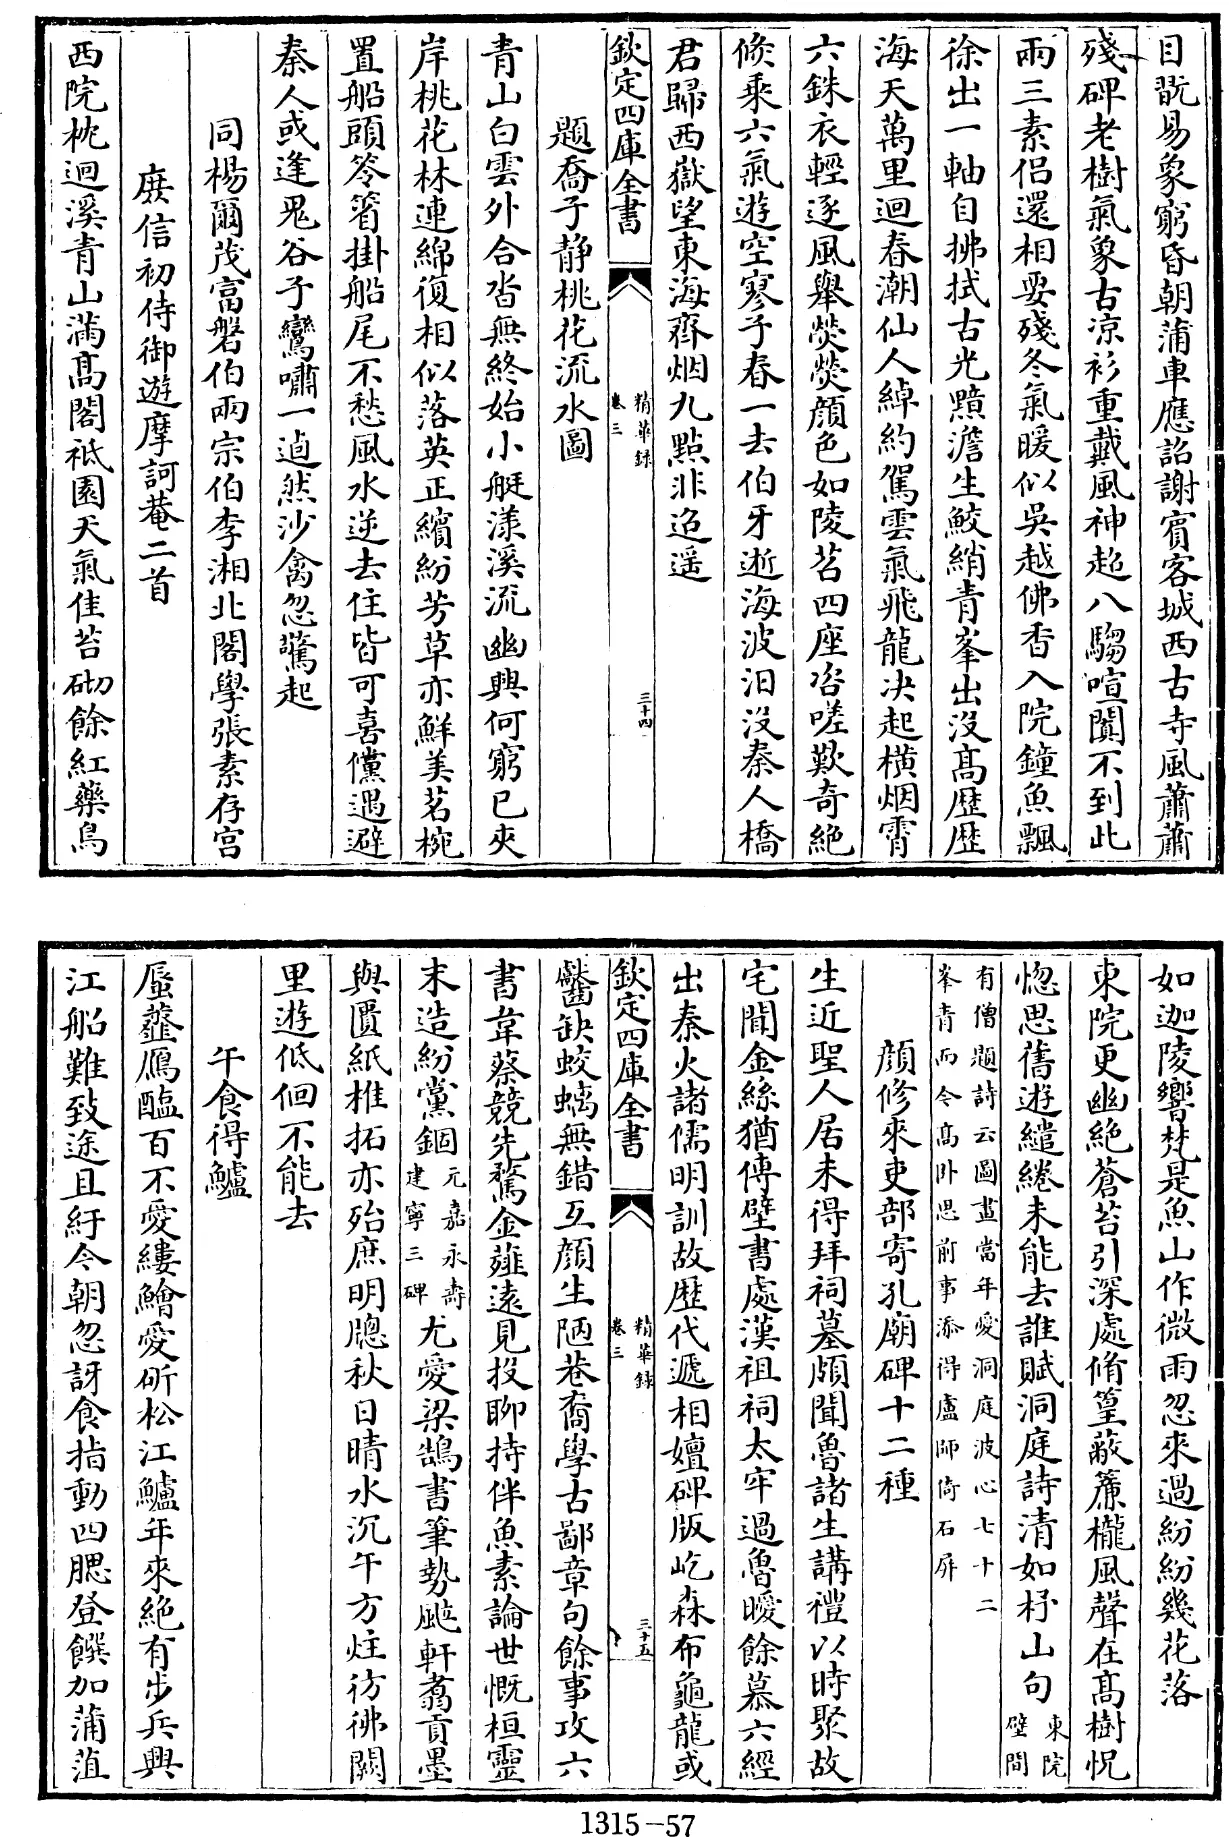 目翫易象窮昏朝蒲車應詔謝賓客城西古寺風蕭蕭
殘碑老樹氣象古涼衫重戴風神超八騶喧闐不到此
兩三素侣還相要殘冬氣暖似吳越佛香入院鐘魚飄
徐出一軸自拂拭古光黯澹生鮫綃青峯出没髙歴歴
海天萬里迴春潮仙人綽約駕雲氣飛龍决起横烟霄
六銖衣輕逐風舉熒熒顔色如陵苕四座咨嗟歎奇絶
倏乘六氣遊空寥予春一去伯牙逝海波汨没秦人橋
君歸西嶽望東海齊烟九點非迢遥
欽定四庫全書
精華録
卷三
三十四
題喬子静桃花流水圖
青山白雲外合沓無終始小艇漾溪流幽興何窮已夾
岸桃花林連綿復相似落英正繽紛芳草亦鮮美茗椀
置船頭笭箵掛船尾不愁風水逆去住皆可喜儻遇避
秦人或逢鬼谷子鸞嘯一逌然沙禽忽驚起
同楊爾茂富磐伯兩宗伯李湘北閣學張素存宫
庶信初侍御遊摩訶菴二首
西院枕迴溪青山滿髙閣祗園天氣佳苔砌餘紅藥鳥
如迦陵響梵是魚山作微雨忽來過紛紛幾花落
東院更幽絶蒼苔引深處脩篁蔽簾櫳風聲在髙樹怳
惚思舊遊繾綣未能去誰賦洞庭詩清如杼山句東院
壁間
有僧題詩云圖畫當年愛洞庭波心七十二
峯青而今髙卧思前事添得盧師倚石屏
顔修來吏部寄孔廟碑十二種
生近聖人居未得拜祠墓頗聞魯諸生講禮以時聚故
宅聞金絲猶傳壁書處漢祖祠太牢過魯曖餘慕六經
出秦火諸儒明訓故歴代遞相嬗碑版屹森布龜龍或
欽定四庫全書
精華録
卷三
三十五
齾缺蛟螭無錯互顔生陋巷裔學古鄙章句餘事攻六
書韋蔡競先騖金薤遠見投聊持伴魚素論世慨桓靈
末造紛黨錮元嘉永壽
建寧三碑尤愛梁鵠書筆勢颭軒翥貢墨
與匱紙椎拓亦殆庶明牕秋日晴水沉午方炷彷彿闕
里遊低佪不能去
午食得鱸
蜃虀鴈醢百不愛縷鱠愛斫松江鱸年來絶有步兵興
江船難致途且紆今朝忽訝食指動四腮登饌加蒲葅
1315-57